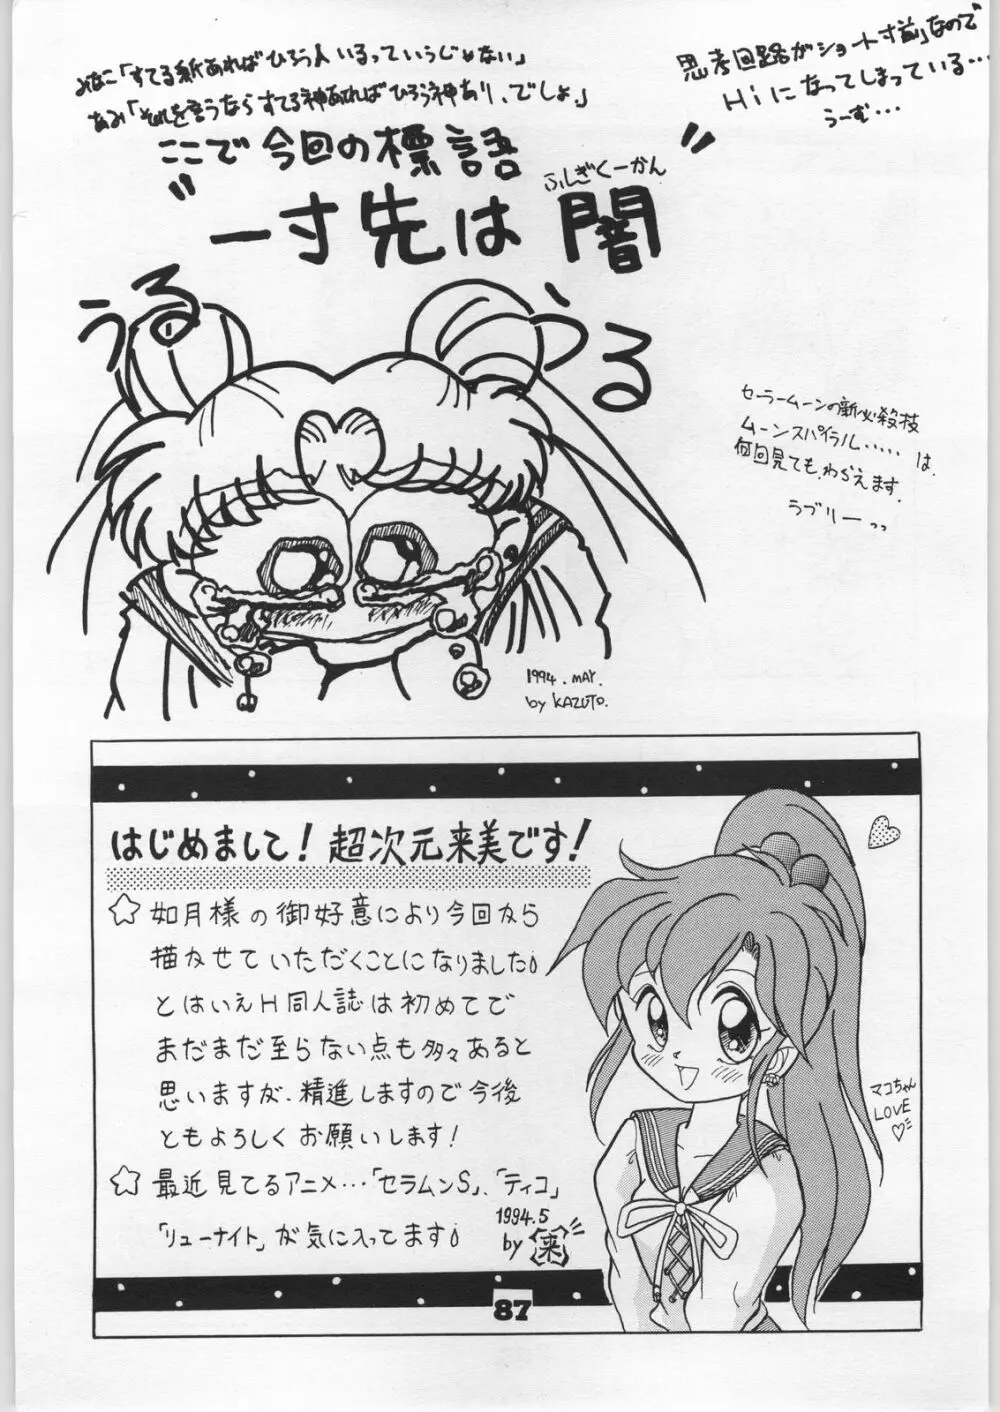 みなこ「すてる紙あればひろう人いるっていうじゃない」
あみ「それを言うならすてる神あればひろう神あり、でしょ。」
思考回路がショート寸前」なので
Hiになってしまっている…
うーむ…
ここで今回の標語
ふしぎくーかん
"一寸先は闇"
うる
うる
セーラームーンの新必殺技
ムーンスパイラル……は、
何回見てもわらえます。
ラブリーっっ
1994.MAY.
by KAZUTO.
はじめまして!超次元来美です!
☆如月様の御好意により今回から
描かせていただくことになりました
とはいえH同人誌は初めてで
まだまだ至らない点も多々あると
思いますが、精進しますので今後
ともよろしくお願いします!
☆最近見てるアニメ…「セラムンS」、「ティコ」
「リューナイト」が気に入ってます
1994.5
by 来
マコちゃん
LOVE♡
87